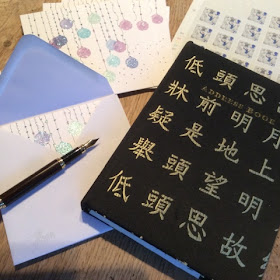 低頭思
ADDRESS BOOK
牀前明月
疑是地上
舉頭望明
低頭思故